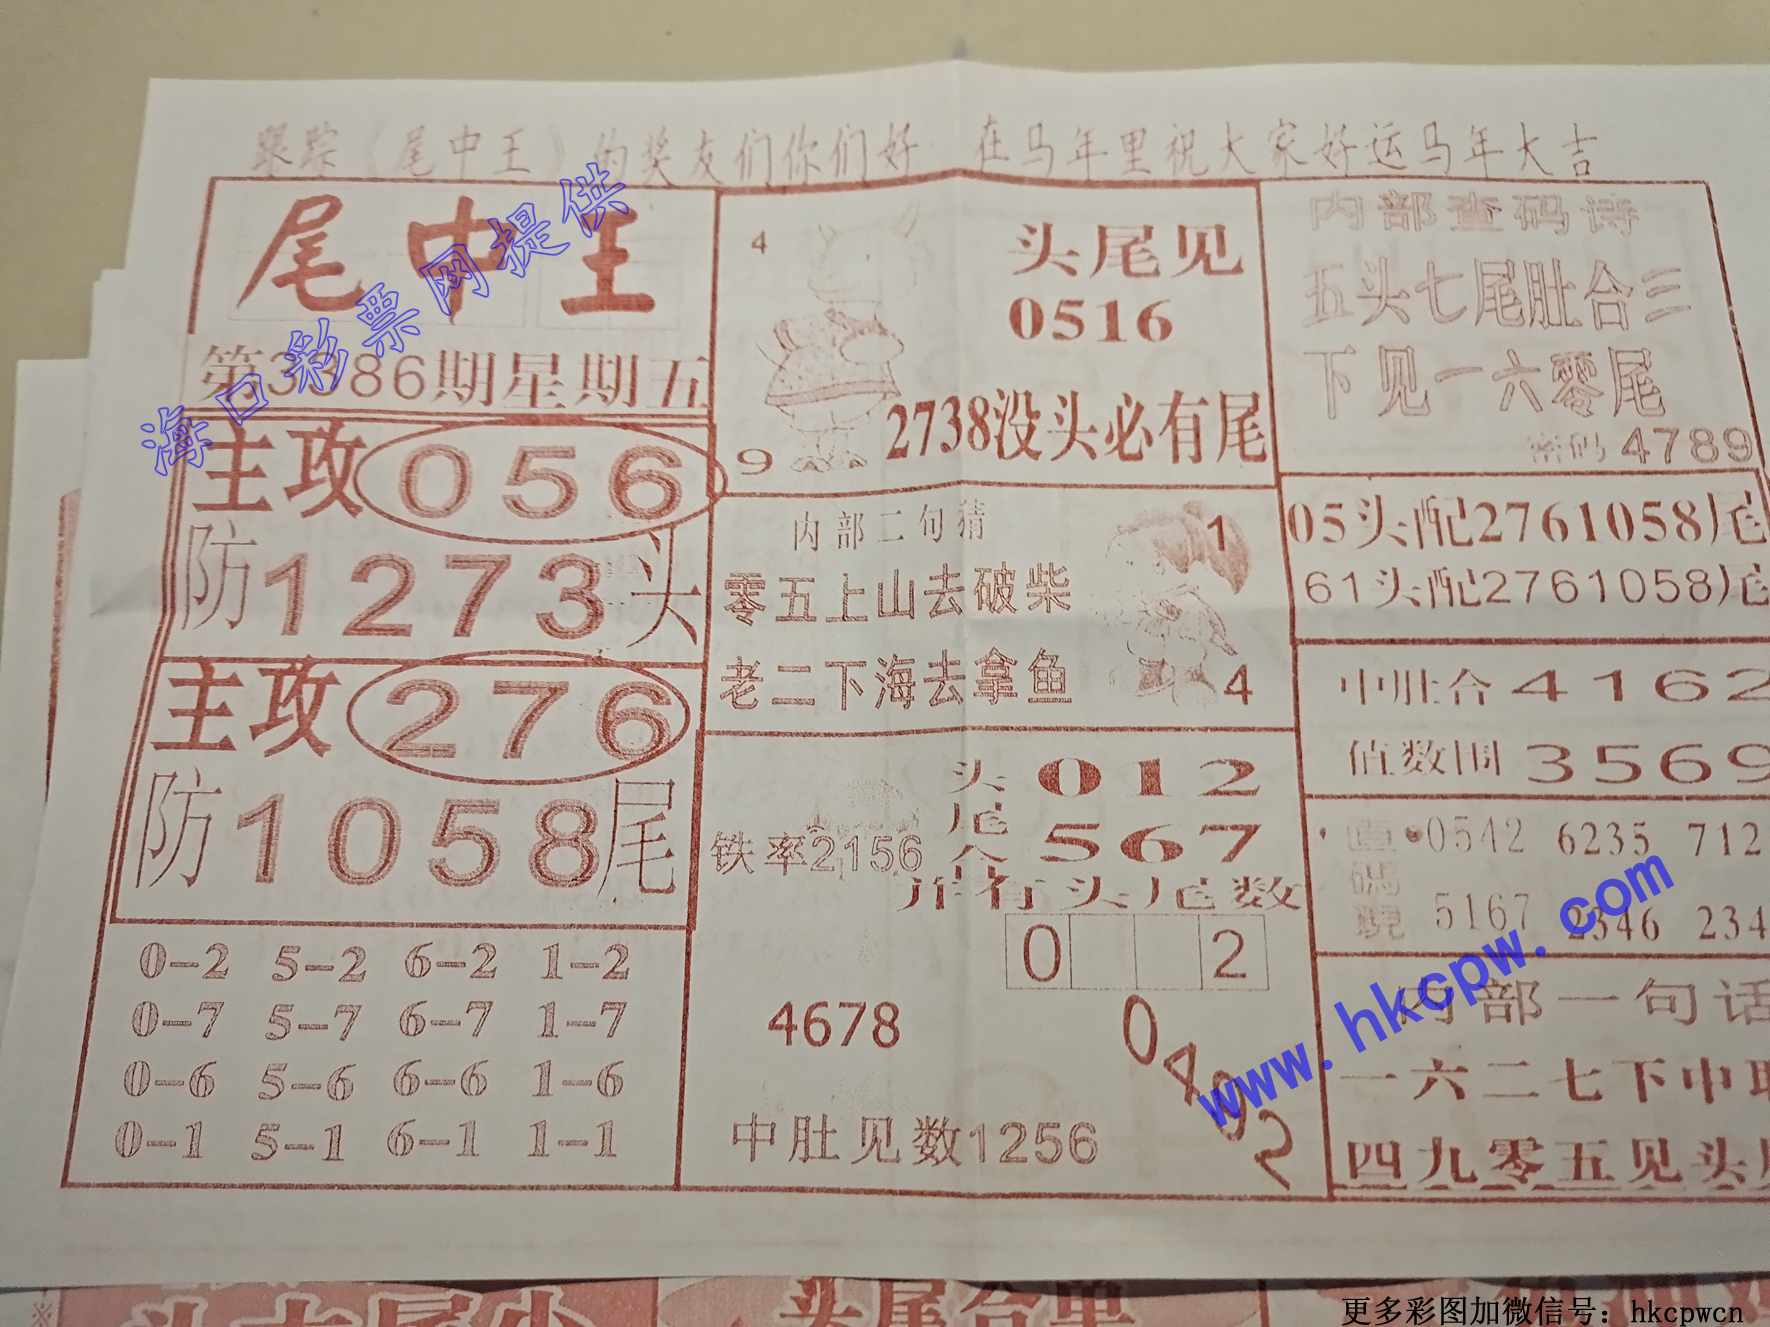 跟踪《尾中王》的奖友们你们好 在马年里祝大家好运马年大吉
尾中王
第3386期星期五
主攻056
防1273头
主攻276
防1058尾
0-2 5-2 6-2 1-2
0-7 5-7 6-7 1-7
0-6 5-6 6-6 1-6
0-1 5-1 6-1 1-1
4
头尾见
0516
2738没头必有尾
9
内部二句猜
1
零五上山去破柴
老二下海去拿鱼
4
头 012
尾
合 567
铁率2156
头尾数
0 2
4678
0492
中肚见数1256
内部查码诗
五头七尾肚合三
下见一六零尾
密码4789
05头配2761058尾
61头配2761058尾
中肚合4162
值数围3569
0542 6235 712
5167 2346 234
内部一句话
一六二七下中
四九零五见头
海口彩票网提供
www.hkcpw.com
头尾合单
更多彩图加微信号：hkcpwcn